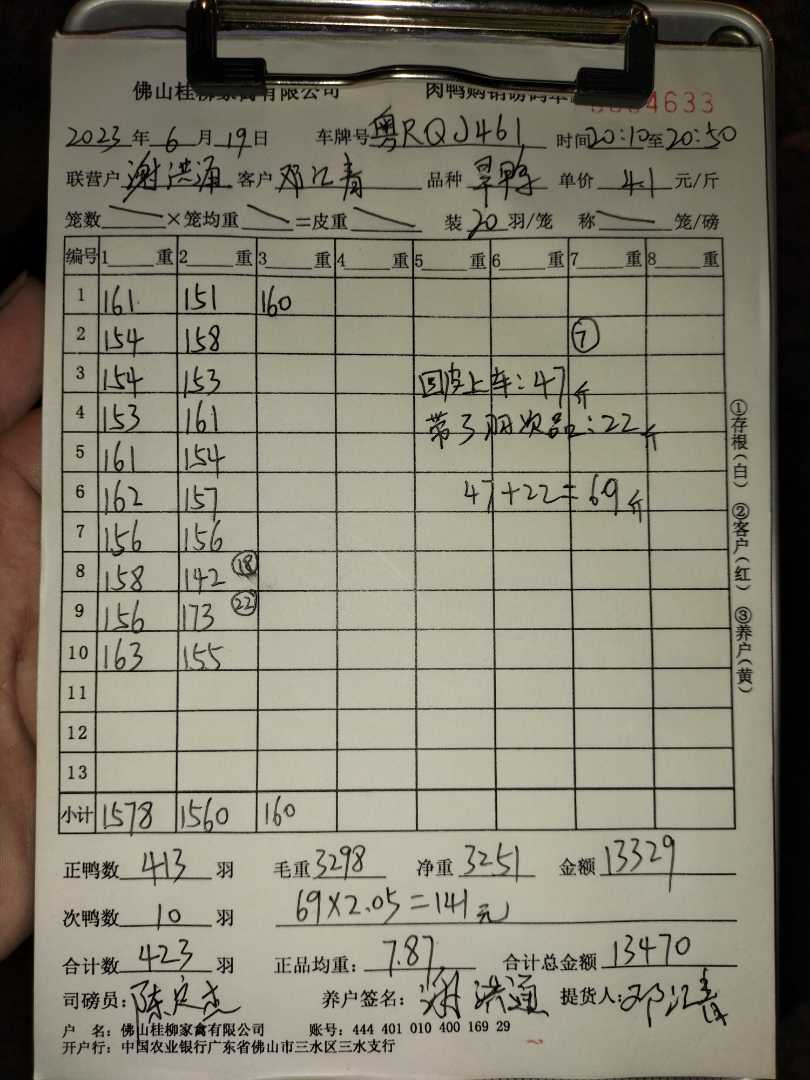 佛山桂柳家禽有限公司 肉鸭购销磅码单 4633
2023年6月19日 车牌号粤RQJ461 时间20:10至20:50
联营户谢洪通 客户邓江青 品种旱鸭 单价4.1元/斤
笼数 ×笼均重 =皮重 装20羽/笼 称 笼/磅
编号 1 重 2 重 3 重 4 重 5 重 6 重 7 重 8 重
1 161 151 160
2 154 158 ⑦
3 154 153 回皮上车:47斤
4 153 161 带3羽次品:22斤
5 161 154
6 162 157 47+22=69斤
7 156 156
8 158 142 ⑱
9 156 173 ㉒
10 163 155
11
12
13
小计 1578 1560 160
①存根(白) ②客户(红) ③养户(黄)
正鸭数413羽 毛重3298 净重3251 金额13329
次鸭数10羽 69×2.05=141元
合计数423羽 正品均重:7.87 合计总金额13470
司磅员:陈定杰 养户签名:谢洪通 提货人:邓江青
户 名:佛山桂柳家禽有限公司 账号:444 401 010 400 169 29
开户行:中国农业银行广东省佛山市三水区三水支行